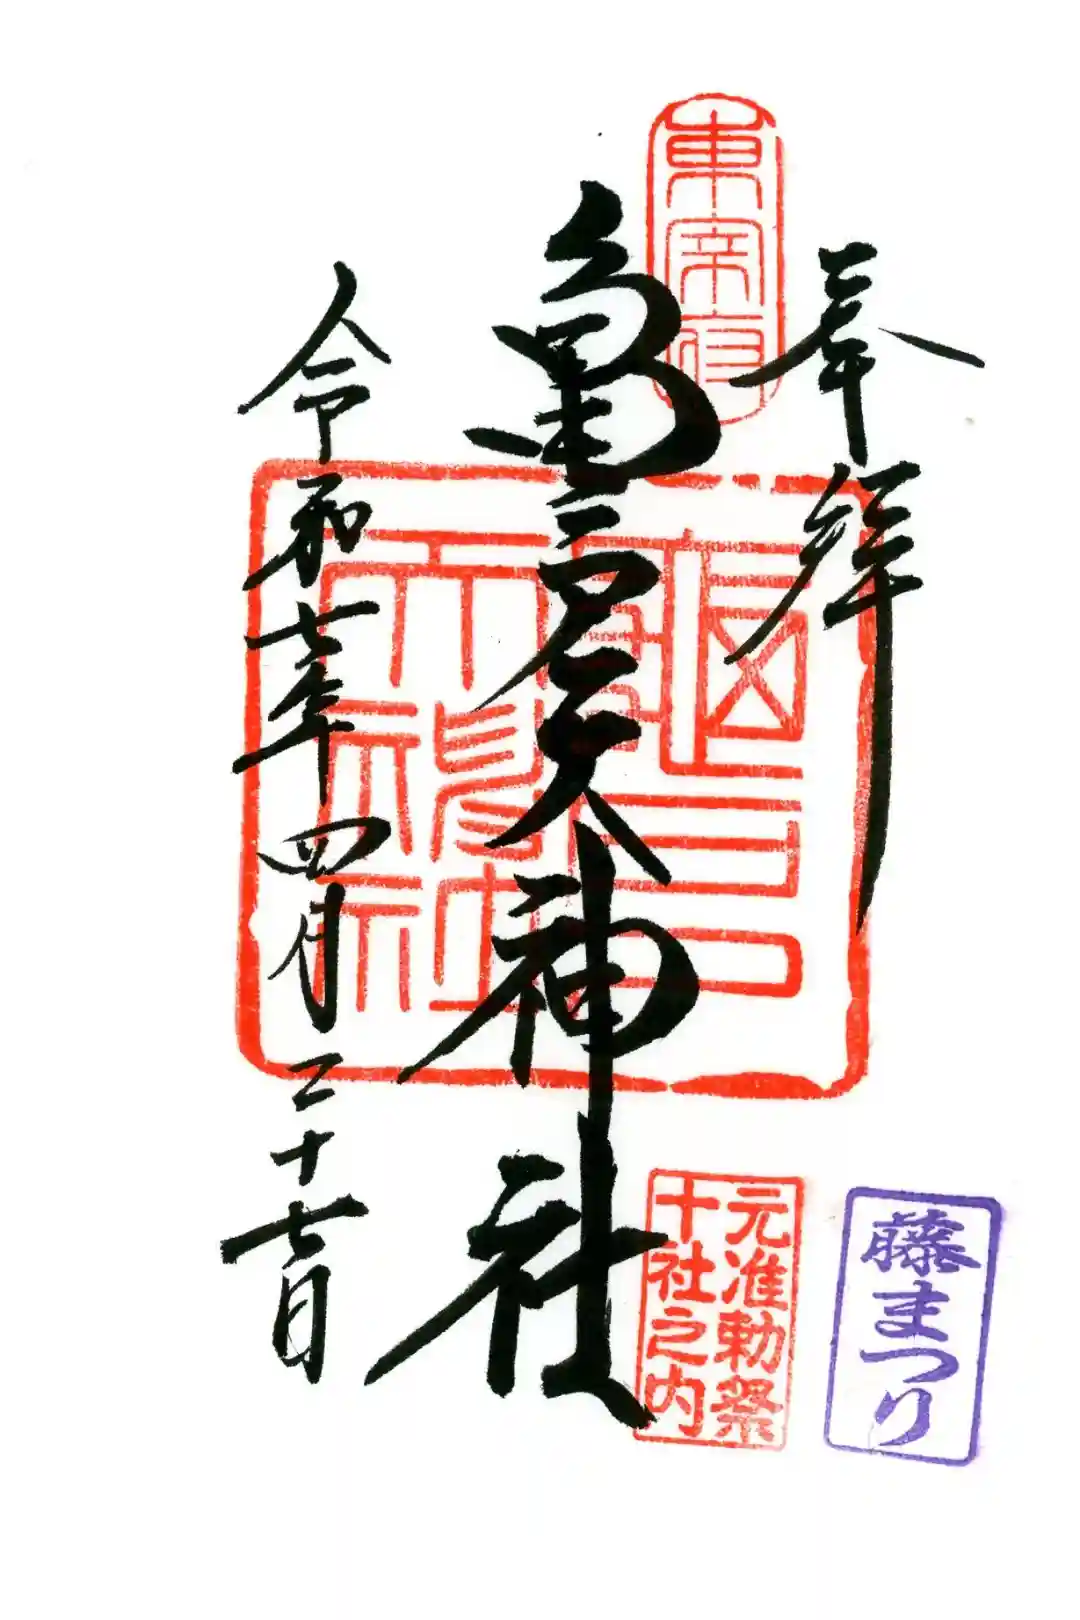 奉拝
東宰府
亀戸天神社
亀戸
天神社
令和七年四月二十七日
元准勅祭
十社之内
藤まつり